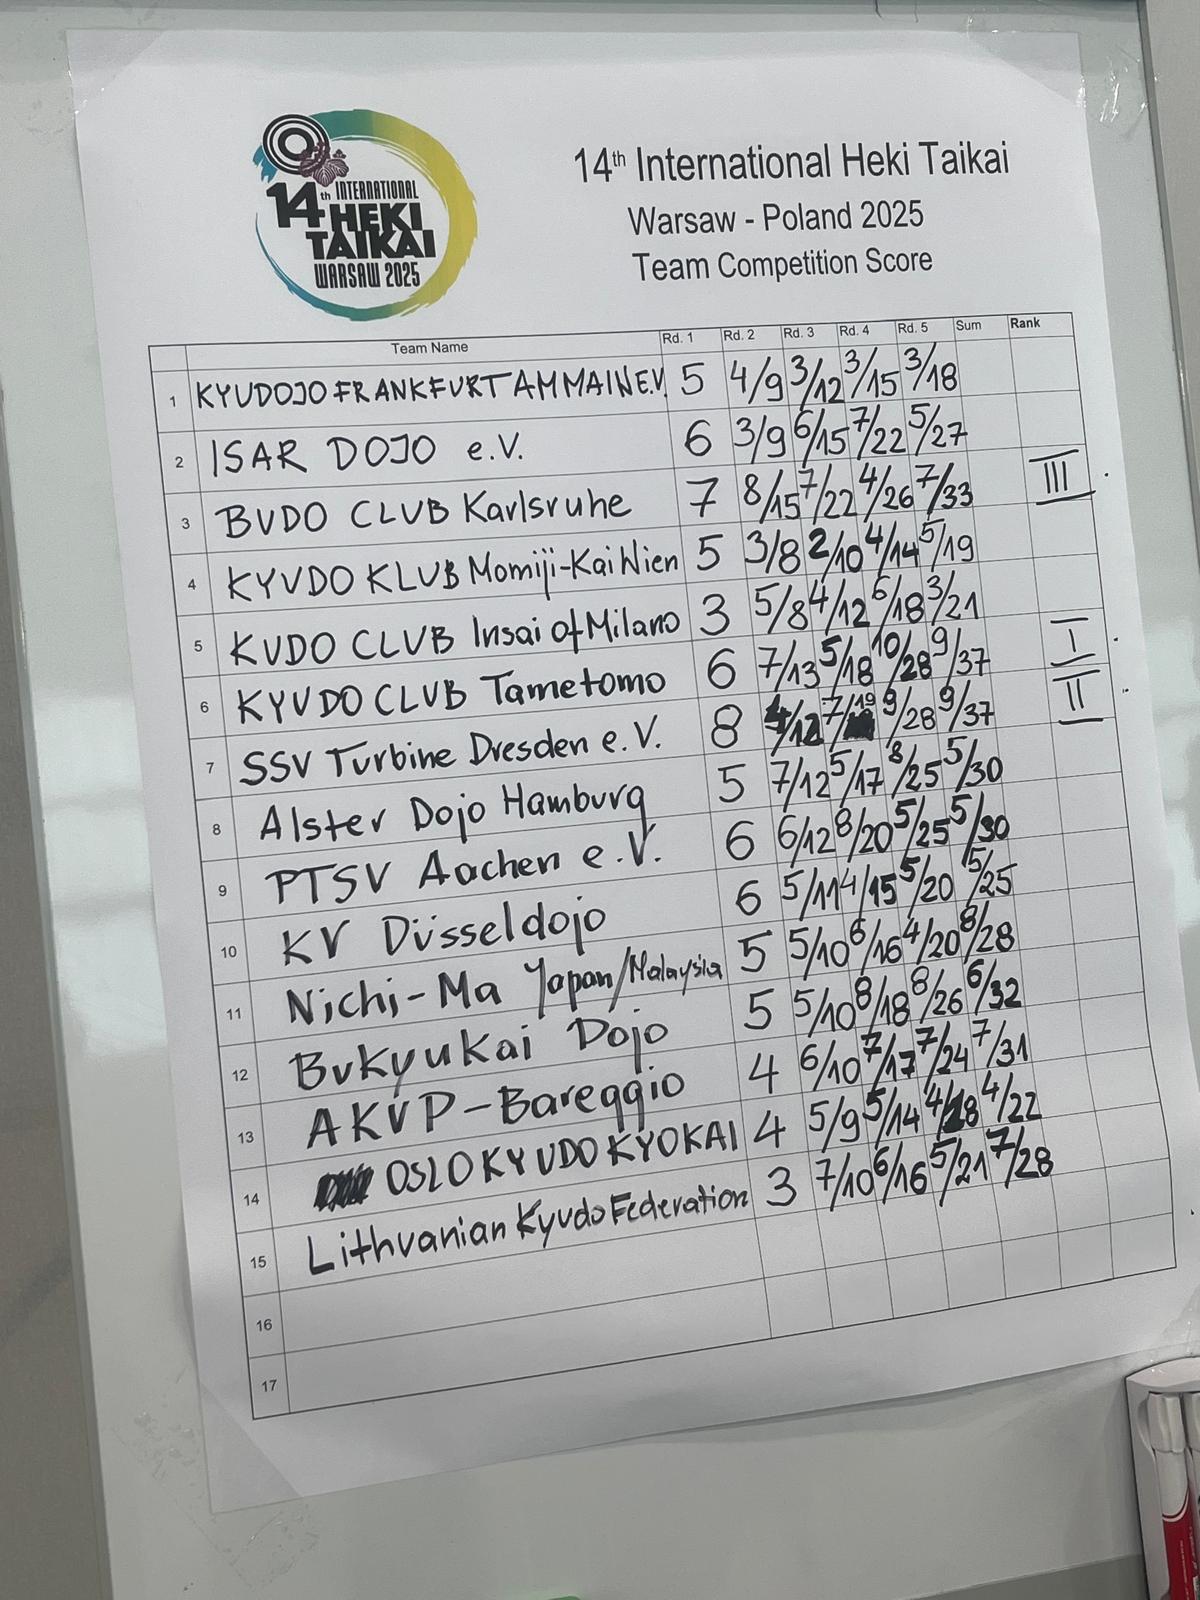 14th INTERNATIONAL
HEKI
TAIKAI
WARSAW 2025
14th International Heki Taikai
Warsaw - Poland 2025
Team Competition Score
Team Name Rd. 1 Rd. 2 Rd. 3 Rd. 4 Rd. 5 Sum Rank
1 KYUDOJO FRANKFURT AM MAIN E.V. 5 4/9 3/12 3/15 3/18
2 ISAR DOJO e.V. 6 3/9 6/15 7/22 5/27
3 BUDO CLUB Karlsruhe 7 8/15 7/22 4/26 7/33 III
4 KYUDO KLUB Momiji-Kai Wien 5 3/8 2/10 4/14 5/19
5 KUDO CLUB Insai of Milano 3 5/8 4/12 6/18 3/21
6 KYUDO CLUB Tametomo 6 7/13 5/18 10/28 9/37 I
7 SSV Turbine Dresden e.V. 8 4/12 7/19 9/28 9/37 II
8 Alster Dojo Hamburg 5 7/12 5/17 8/25 5/30
9 PTSV Aachen e.V. 6 6/12 8/20 5/25 5/30
10 KV Düsseldojo 6 5/11 4/15 5/20 5/25
11 Nichi-Ma Japan/Malaysia 5 5/10 6/16 4/20 8/28
12 BuKyuKai Dojo 5 5/10 8/18 8/26 6/32
13 AKVP-Bareggio 4 6/10 7/17 7/24 7/31
14 OSLO KYUDO KYOKAI 4 5/9 5/14 4/18 4/22
15 Lithuanian Kyudo Federation 3 7/10 6/16 5/21 7/28
16
17